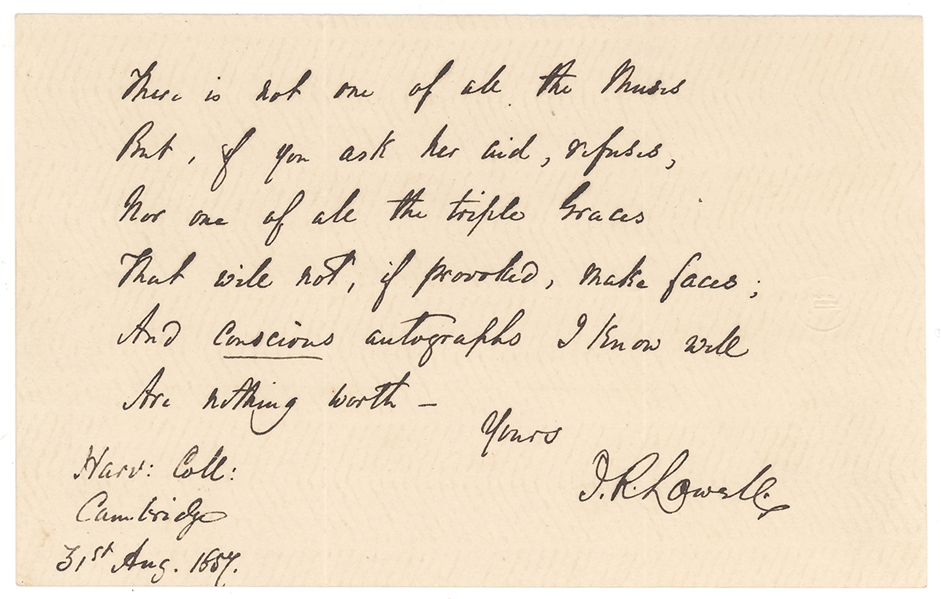 There is not one of all the Muses
But, if you ask her aid, refuses,
Nor one of all the triple Graces
That will not, if provoked, make faces;
And conscious autographs I know well
Are nothing worth —
Yours
J. R. Lowell.
Harv: Coll:
Cambridge
31st Aug. 1857.